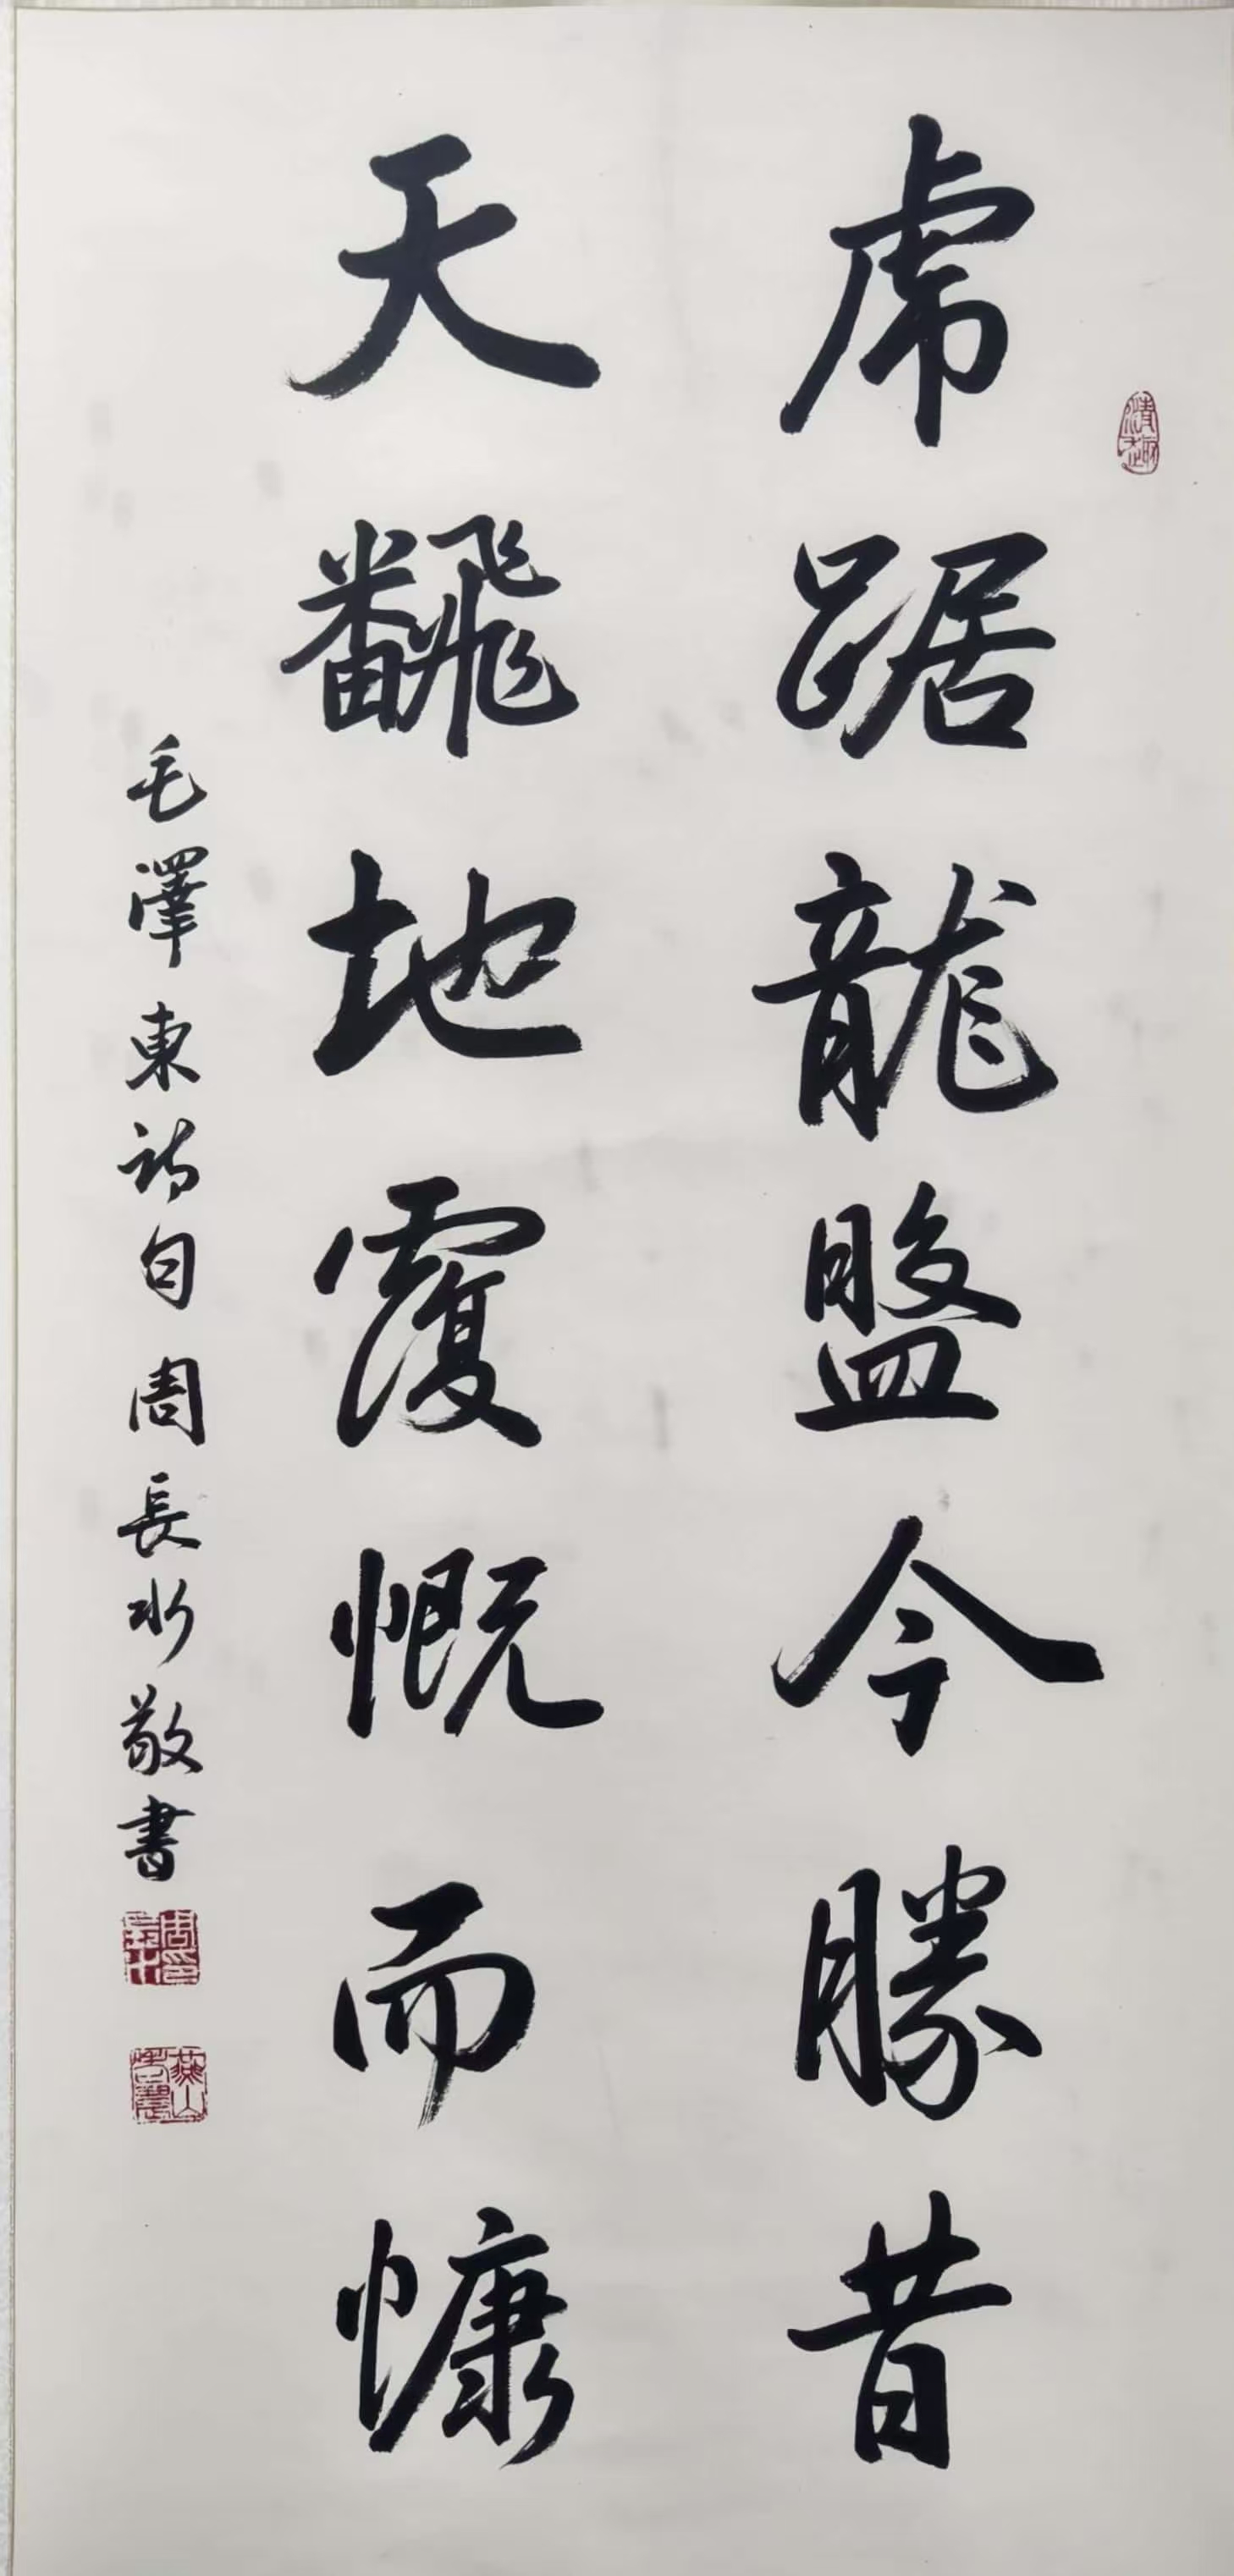 虎踞龍盤今勝昔
天飜地覆慨而慷
毛澤東詩句 周長水敬書
清趣